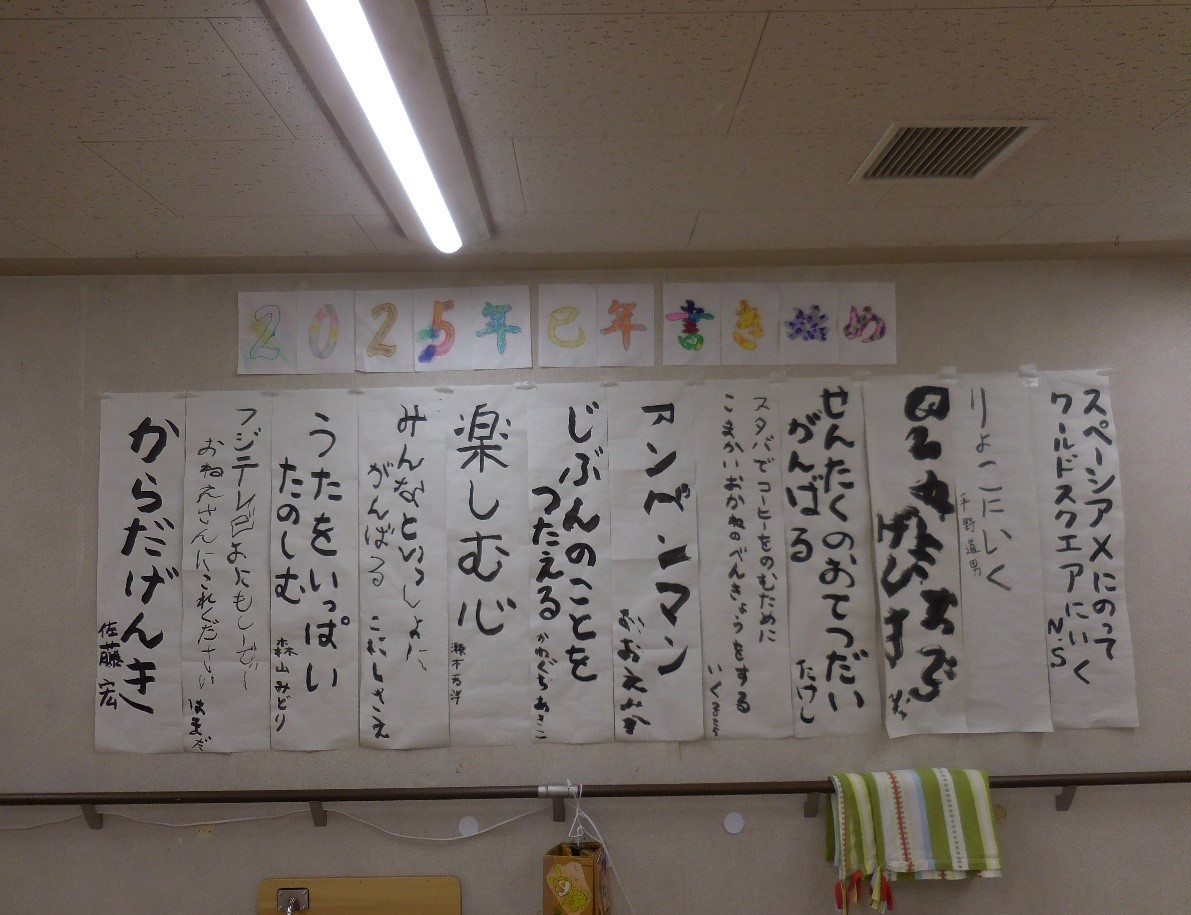 2025年 巳年 書き始め
スペーシアXにのって
ワールドスクエアにいく
N.S
りょこにいく
平野道男
せんたくのおてつだい
がんばる
たけし
スタバでコーヒーをのむために
こまかいおかねのべんきょうをする
アンペンマン
じぶんのことを
つたえる
かわぐちあきこ
楽しむ心
みんなといっしょに
がんばる
こにしさえ
うたをいっぱい
たのしむ
森山みどり
フジテレビ
おねえさんにこれください
はまだ
からだげんき
佐藤宏